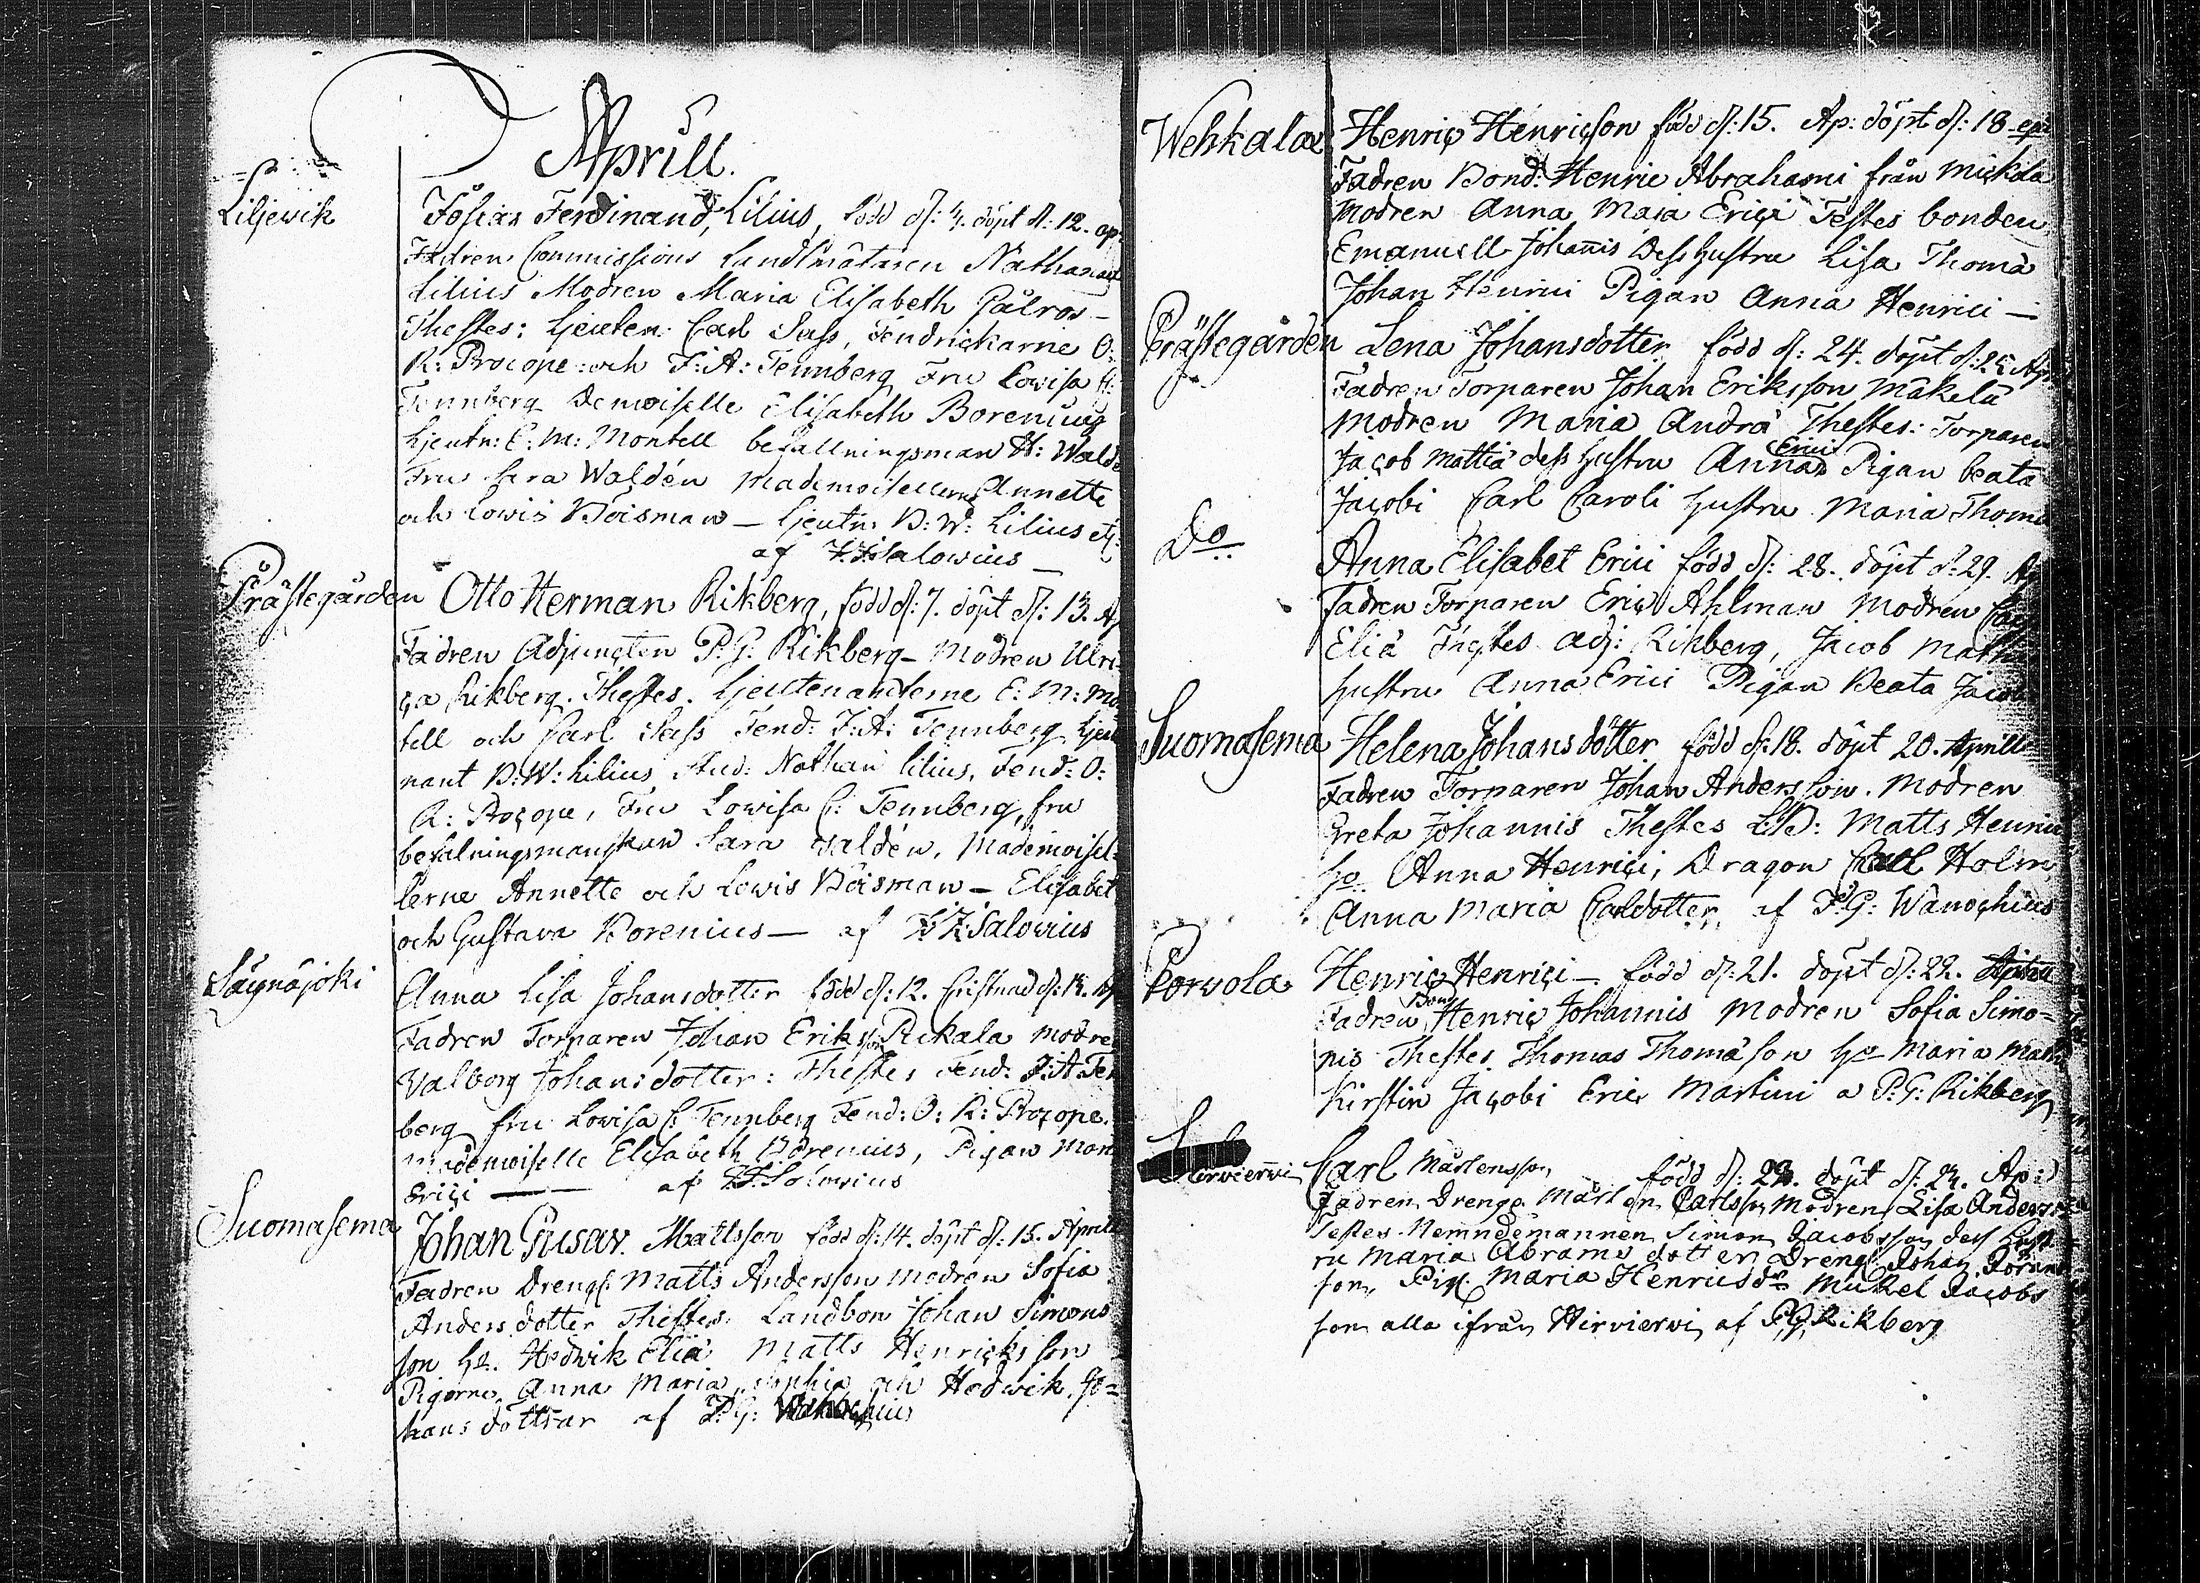 Aprill.
Liljewik
Josias Ferdinand, Lilius, född d: 4. döpt d: 12. ap:
Fadren Commissions Landtmätaren Nathanael
Lilius Modren Maria Elisabeth Pálros —
Thestes: Ljeuten: Carl Sass, Fendrickarne O:
R: Procope: och F: A: Tennberg Fru Lowisa C:
Tennberg Demoiselle Elisabeth Borenius
Ljeutn: E: M: Montell befallningsman H: Waldé
Fru Sara Waldén Mademoisellerne Annette
och Lowis Boisman — Ljeutn: B: W: Lilius etc:
af F: F: Salovius —
Prästegården Otto Herman Rikberg, född d: 7. döpt d: 13. Ap
Fadren Adjuncten P. G: Rikberg — Modren Ulri-
ca Rikberg. Thestes. Ljeutenanterne E: M: Mon
tell och Carl Sass Fend: F: A: Tennberg, Ljeut
nant B: W: Lilius, Aud: Nathan Lilius, Fend: O:
R: Procope, Fru Lowisa C: Tennberg, fru
befalningsmanskan Sara Waldén, Mademoisel-
lerne Annette och Lowis Boisman — Elisabet
och Gustava Borenius — af F: F: Salovius
Säynäjoki
Anna Lisa Johansdotter född d: 12. Cristnad d: 14. Ap
Fadren Torparen Johan Eriksson Rekala modre
Valborg Johansdotter: Thestes Fend: F: A Ten
berg fru Lovisa C: Tennberg Fend: O: R: Procope.
mademoiselle Elisabeth Borenius, Pigan Mari
Erici — af F. F. Salovius
Suomasema
Johan Gusav. Mattsson född d: 14. döpt d: 15. Aprill
Fadren Dreng: Matts Andersson modren Sofia
Andersdotter Thestes. Landbon Johan Simons
son Ho. Hedwik Eliä Matts Henricksson
Pigorne Anna Maria, Sophia och Hedwik Jo-
hansdöttrar af F. G: Wanochius
Wehkala
Henric Henricson född d: 15. Ap: döpt d: 18 ap
Fadren Bond: Henric Abrahami från Mickola
Modren Anna Maja Erici Testes bonden
Emanuell Johannis Dess Hustru Lisa Thomä
Johan Henrici Pigan Anna Henrici —
Prästegården
Lena Johansdotter född d: 24. döpt d: 25 Ap
Fadren Torparen Johan Eriksson Mäkelä
Modren Maria Andrä Thestes: Torparen
Jacob Mattiä dess Hustru Anna Erici Pigan Beata
Jacobi Carl Caroli Hustru Maria Thomä
Do
Anna Elisabet Erici född d: 28. döpt d: 29. Ap
Fadren Torparen Eric Ahlman Modren Caj
Eliä Thestes Adj: Rikberg, Jacob Matth
Hustru Anna Erici Pigan Beata Jacob
Suomasema
Helena Johansdotter född d: 18. döpt 20. Aprill
Fadren Torparen Johan Andersson. Modren
Greta Johannis Thestes L: B: Matts Henrici
Ho. Anna Henrici, Dragon Carl Holm
Anna Maria Carldotter af F: G: Wanochius
Porvola
Henric Henrici — född d: 21. döpt d: 22. Aprill
Fadren Bond Henric Johannis Modren Sofia Simo-
nis Thestes. Thomas Thomäson Ho Maria Matt
Kirstin Jacobi Eric Martini a P: G: Rikberg
Hirvierwi
Carl Mårtensson född d: 23. döpt d: 24. Ap:
Fadren Drenge Mårten Carlsson Modren Lisa Anders
Testes Nemndemannen Simon Jacobsson dess Hust
ru Maria Abrams dotter Dreng: Johan Jöran
son, Pig: Maria Henricsdr Mickel Jacobs
son alla ifrån Hirvierwi af P. G. Rikberg